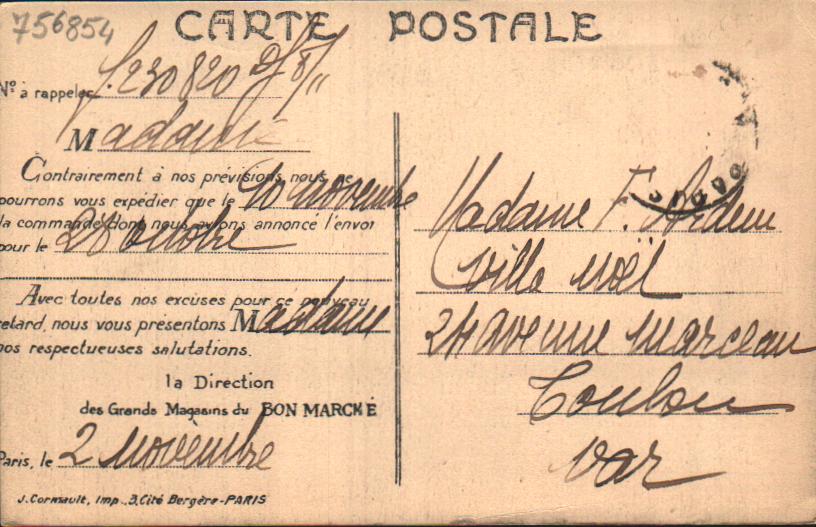 756854
CARTE POSTALE
N° à rappeler J.230820
Madame
Contrairement à nos prévisions nous ne
pourrons vous expédier que le 10 novembre
la commande dont nous avons annoncé l'envoi
pour le 28 octobre
Avec toutes nos excuses pour ce nouveau
retard, nous vous présentons Madame
nos respectueuses salutations.
la Direction
des Grands Magasins du BON MARCHÉ
Paris, le 2 novembre
J. Cormault, Imp., 3, Cité Bergère-PARIS
Madame F.
Villa Noël
24 avenue Marceau
Toulon
Var